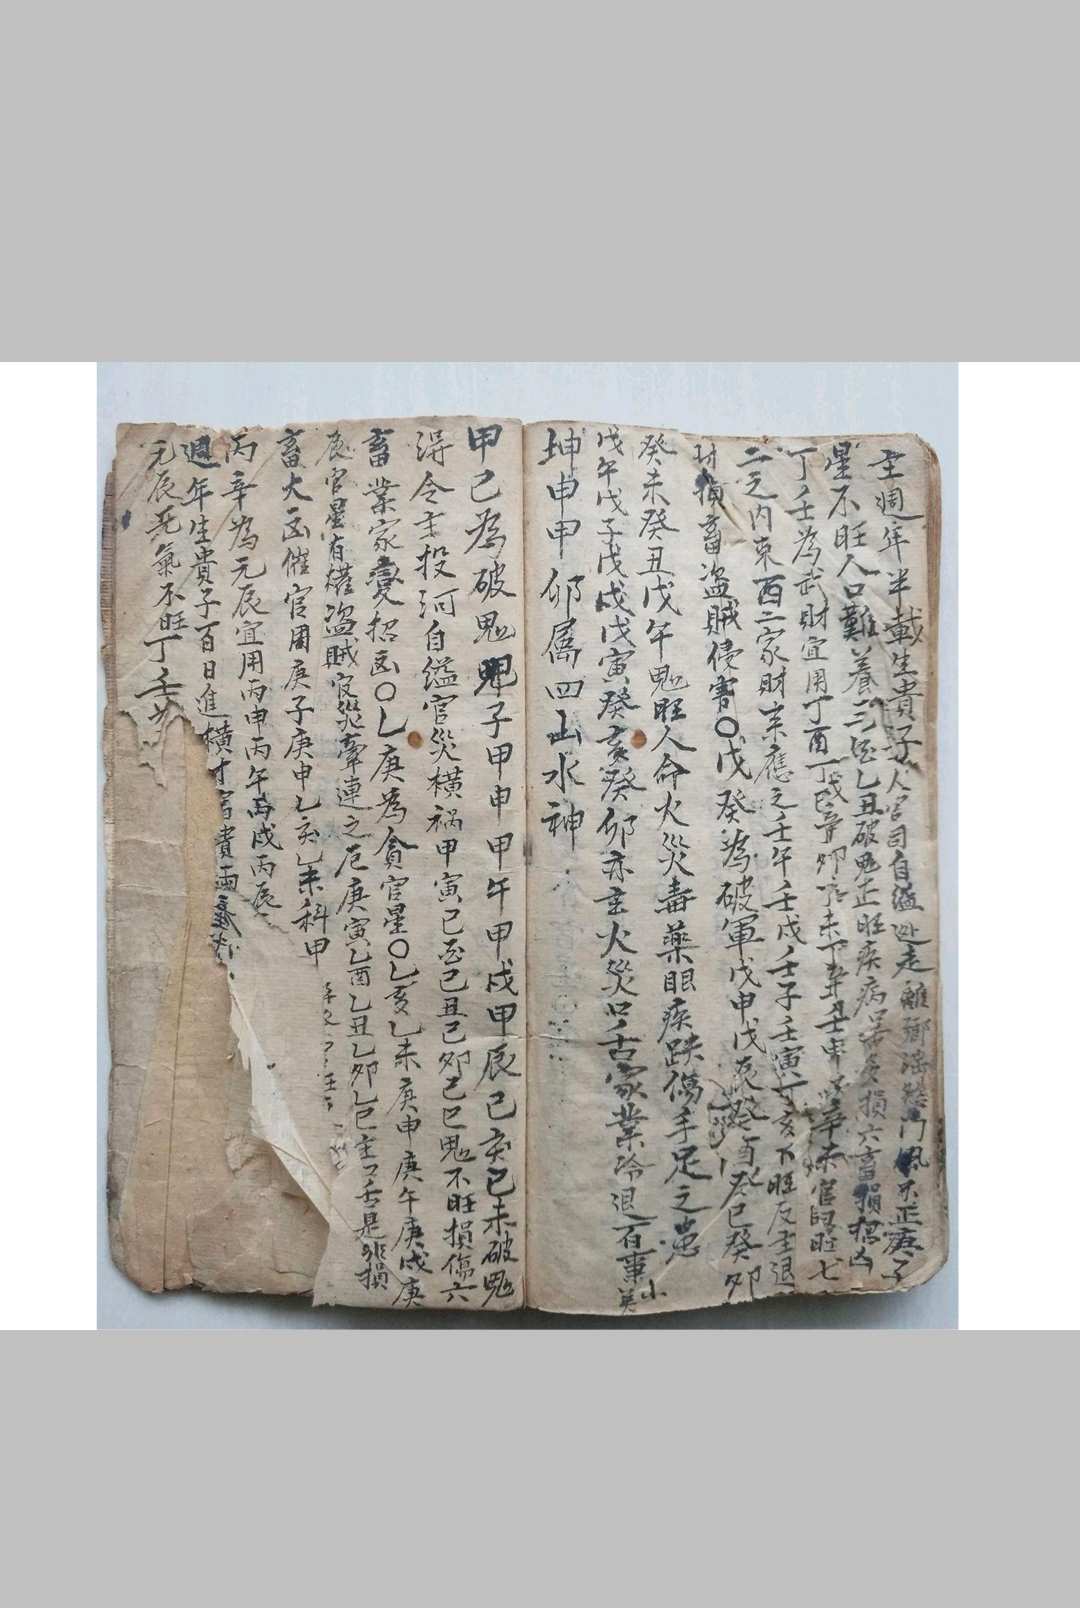 主週年半載生貴子人官司自縊逃走離鄉淫慾門風不正庚子
星不旺人口難養乙丑破鬼正旺疾病損六畜損招凶
丁壬為武財宜用丁酉丁未丁丑壬申官旺七
二之内東酉二家財来應之壬午壬戌壬子壬寅丁亥不旺反主退
財損畜盜賊侵害〇戊癸為破軍戊申戊辰癸酉癸巳癸卯
癸未癸丑戊午鬼旺人命火災毒藥眼疾跌傷手足之患
戊午戊子戊戌戊寅癸亥癸卯亦主火災口舌家業冷退百事
小
坤申甲卯屬四山水神
甲己為破鬼甲子甲申甲午甲戌甲辰己亥己未破鬼
得令主投河自縊官災橫禍甲寅己酉己丑己卯己巳鬼不旺損傷六
畜業家變招凶〇乙庚為貪官星〇乙亥乙未庚申庚午庚戌庚
辰官星有權盜賊官災牽連之厄庚寅乙酉乙丑乙卯乙巳主口舌是非損
畜大凶催官用庚子庚申乙亥乙未科甲
丙辛為元辰宜用丙申丙午丙戌丙辰
週年生貴子百日進橫才富貴兩
元辰死氣不旺丁壬